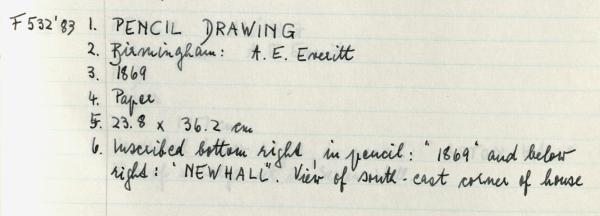 F532'83 1. PENCIL DRAWING
2. Birmingham: A. E. Everitt
3. 1869
4. Paper
5. 23.8 x 36.2 cm
6. Inscribed bottom right, in pencil: "1869" and below
right: "NEWHALL". View of south-east corner of house